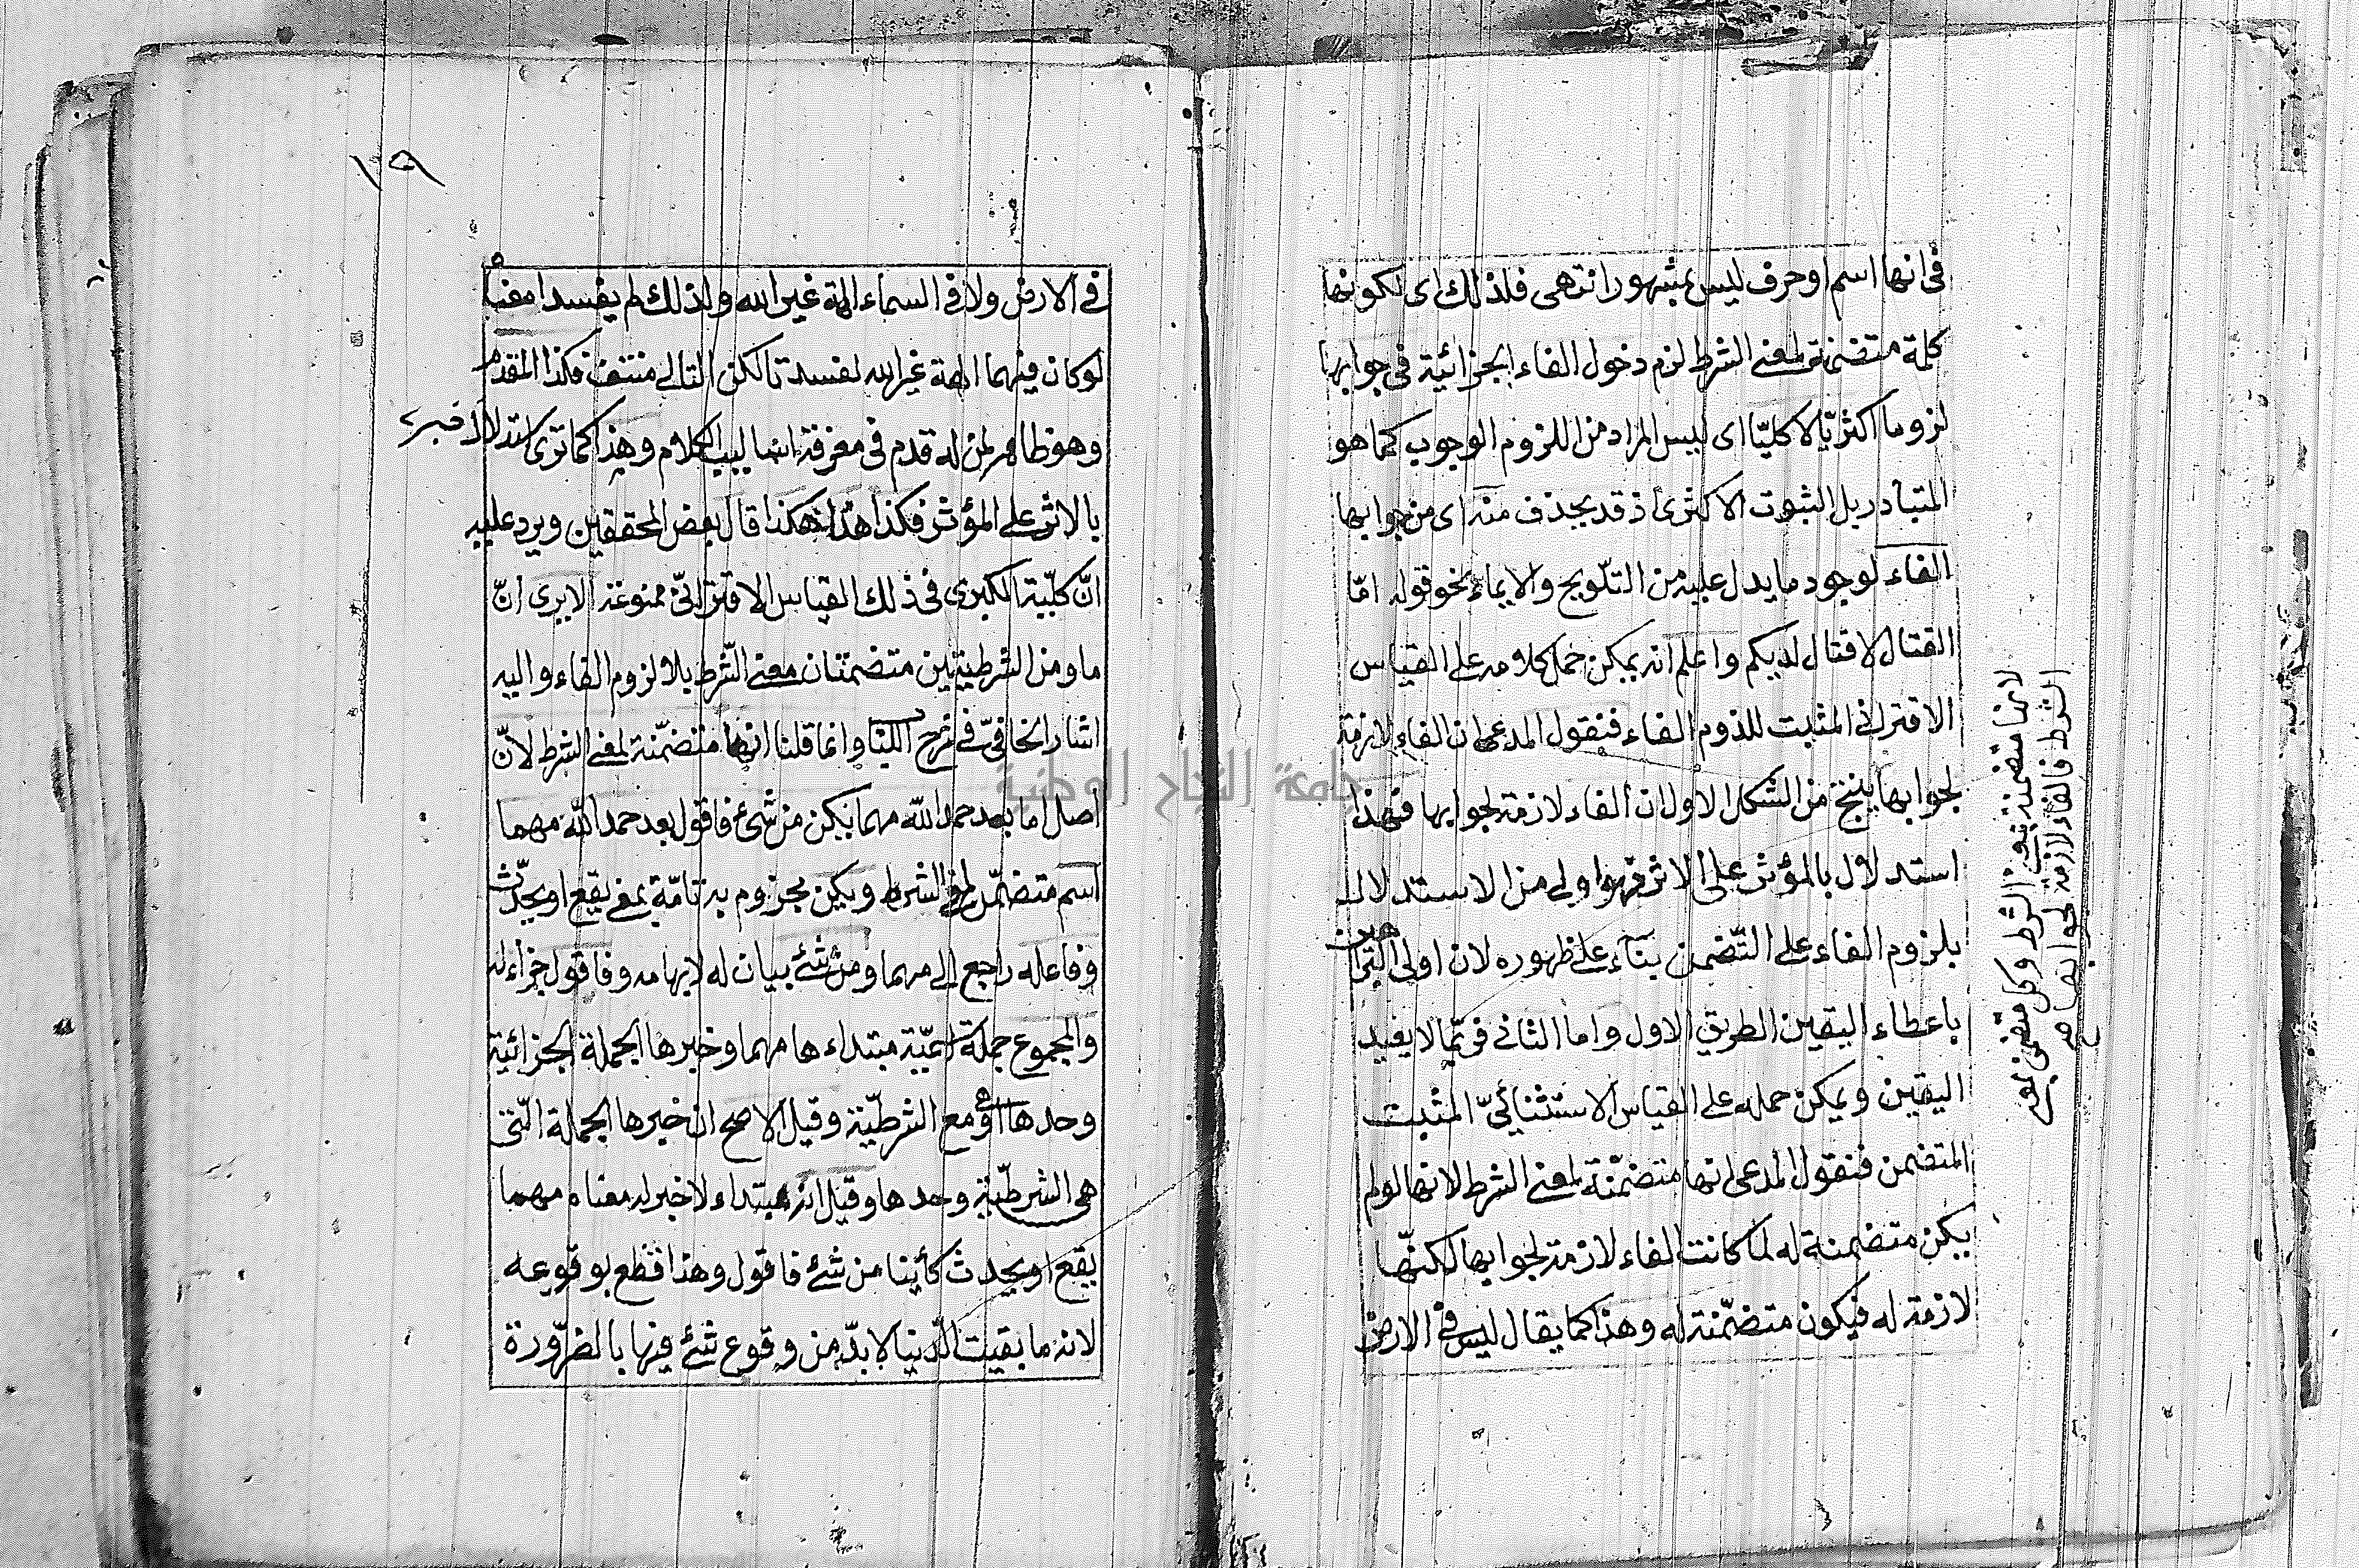 في انها اسم او حرف ليس بمشهور انتهى فلذلك اى لكونها
كلمة متضمنة لمعنى الشرط لزم دخول الفاء الجزائية في جوابها
لزوما اكثريّا لا كليّا اى ليس المراد من اللزوم الوجوب كما هو
المتبادر بل الثبوت الاكثرى اذ قد يحذف منه اى من جوابها
الفاء لوجود ما يدل عليه من التلويح والايماء نحو قوله امّا
القتال لا قتال لديكم واعلم انه يمكن حمل كلامه على القياس
الاقتراني المثبت للذوم الفاء فنقول المدعى ان الفاء لازمة
لجوابها ينتج من الشكل الاول ان الفاء لازمة لجوابها فهذا
استدلال بالمؤثر على الاثر فهو اولى من الاستدلال
بلزوم الفاء على التّضمن بناء على ظهوره لان اولى البراهين
باعطاء اليقين الطريق الاول واما الثانى فربّما لا يفيد
اليقين ويمكن حمله على القياس الاستثنائيّ المثبت
المتضمن فنقول المدعى انها متضمّنة لمعنى الشرط لانها لو لم
يكن متضمنة له لما كانت الفاء لازمة لجوابها لكنّها
لازمة له فيكون متضمّنة له وهذا كما يقال ليس في الارض
لانها متضمنة بمعنى الشرط وكل متضمن لمعنى
الشرط فالفاء لازمة لجوابها صح
١٩
في الارض ولا في السماء الهة غير الله ولذلك لم يفسدا
لو كان فيهما الهة غير الله لفسدتا لكن التالى منتف فكذا المقدم
وهو ظاهر لمن له قدم في معرفة اساليب الكلام وهذا كما ترى استدلال
بالاثر على المؤثر فكذا هذا هكذا قال بعض المحققين ويرد عليه
انّ كلّية الكبرى في ذلك القياس الاقترانىّ ممنوعة الا يرى انّ
ما ومن الشرطيتين متضمنتان معنى الشّرط بلا لزوم الفاء واليه
اشار الخافىّ في شرح اللبّ وانما قلنا انها متضمّنة لمعنى الشرط لانّ
اصل اما بعد حمد الله مهما يكن من شئ فاقول بعد حمد الله مهما
اسم متضمّن لمعنى الشرط ويكن مجزوم به تامّة بمعنى يقع او يحدث
وفاعله راجع الى مهما ومن شئ بيان له لابهامه وفاقول جزاء له
والمجموع جملة اسميّة مبتداءها مهما وخبرها الجملة الجزائية
وحدها او مع الشرطيّة وقيل الاصح ان خبرها الجملة التى
هى الشرطيّة وحدها وقيل انه مبتداء لا خبر له معناه مهما
يقع او يحدث كائنا من شئ فاقول وهذا قطع بوقوعه
لانه ما بقيت الدّنيا لا بدّ من وقوع شئ فيها بالضّرورة
جامعة النجاح الوطنية